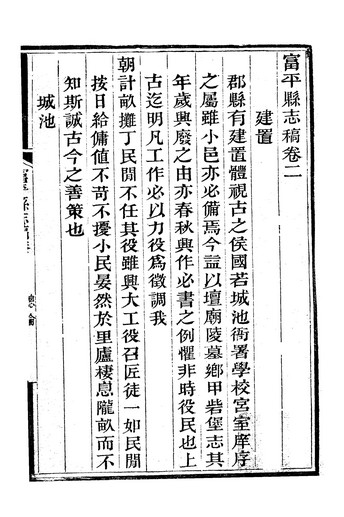 富平縣志稿卷二
建置
郡縣有建置體視古之侯國若城池衙署學校宮室庠序
之屬雖小邑亦必備焉今益以壇廟陵墓鄉甲砦堡志其
年歲興廢之由亦春秋興作必書之例懼非時役民也上
古迄明凡工作必以力役爲徵調我
朝計畝攤丁民間不任其役雖興大工役召匠徒一如民間
按日給傭値不苛不擾小民晏然於里廬棲息隴畝而不
知斯誠古今之善策也
城池